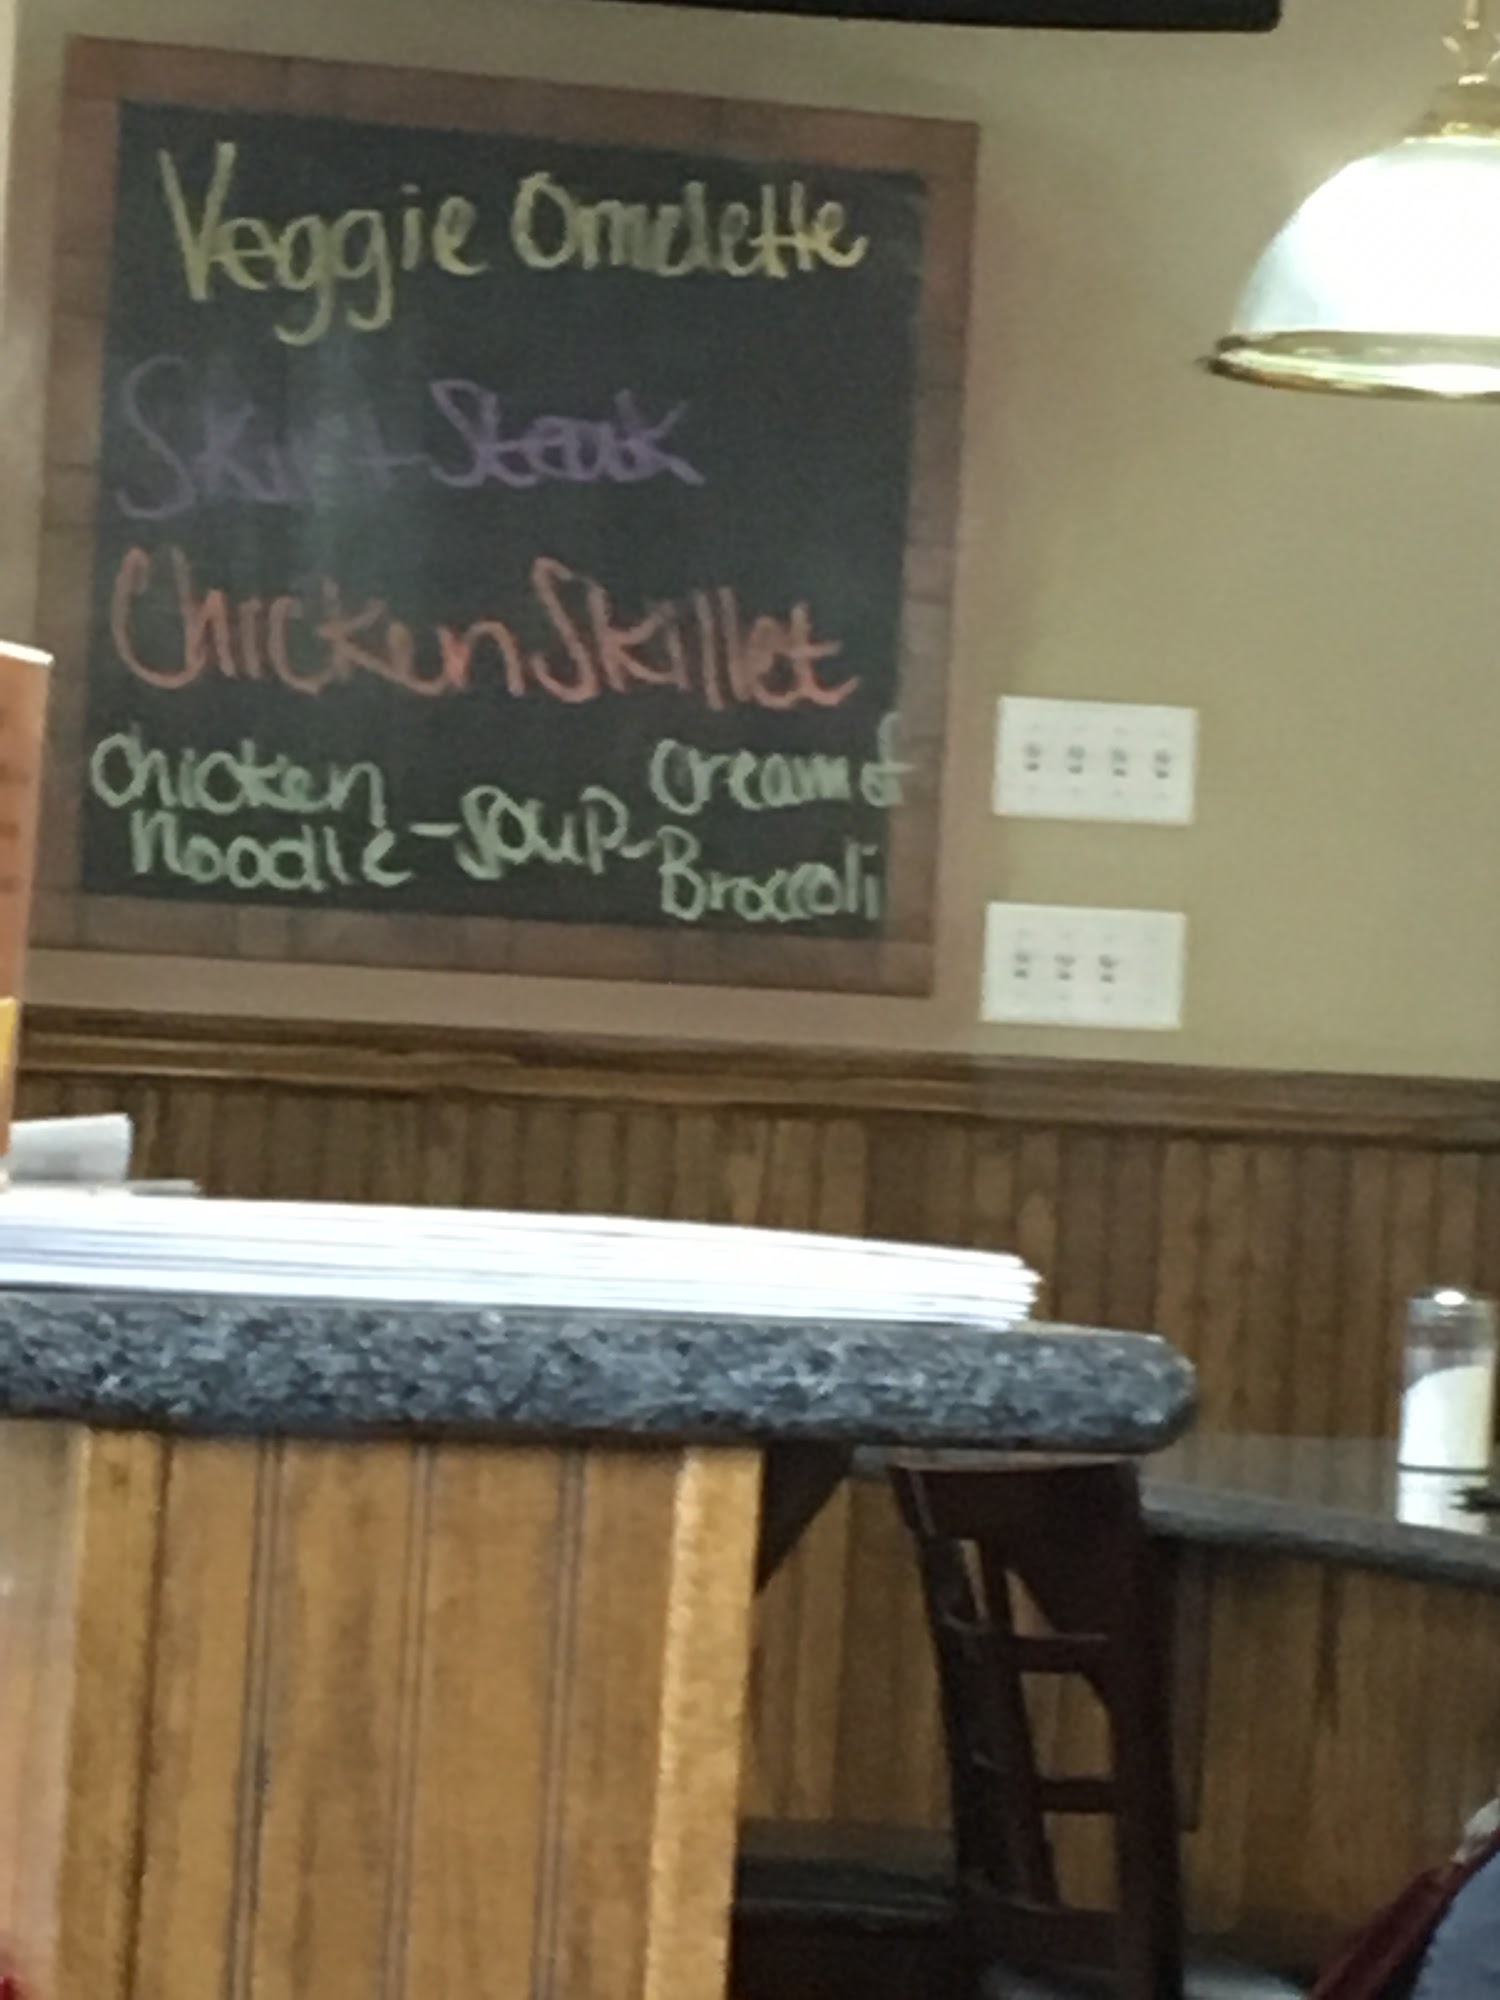 Veggie Omelette
Skirt Steak
Chicken Skillet
Chicken Noodle - Soup - Cream of Broccoli